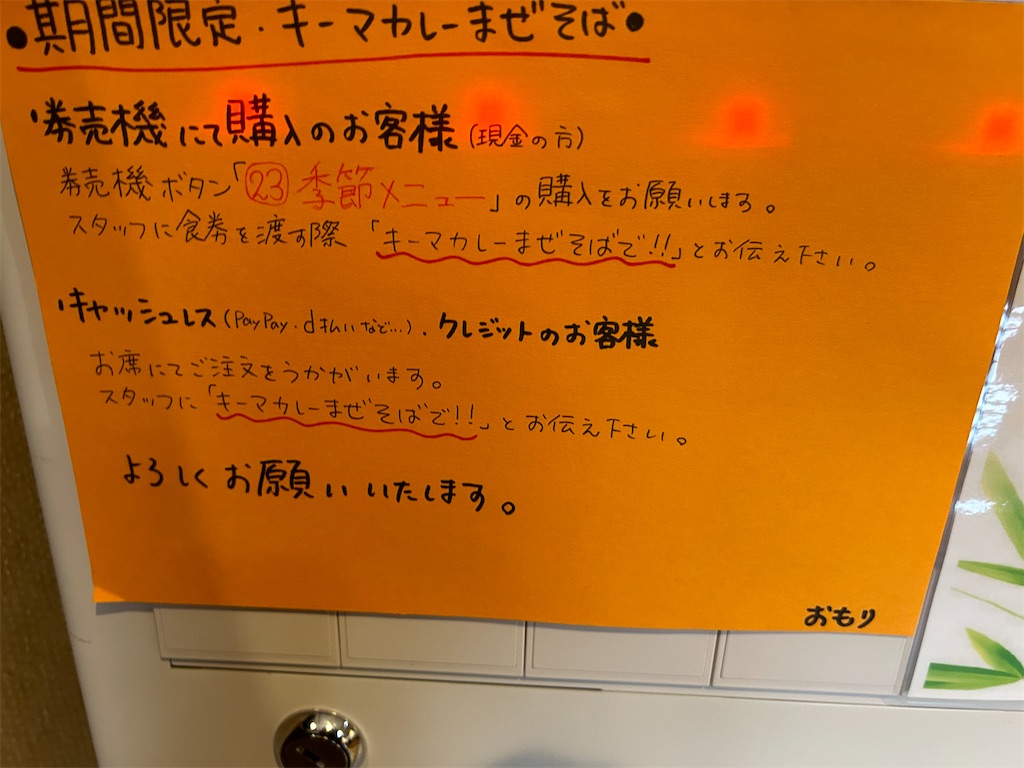 ●期間限定・キーマカレーまぜそば●
券売機にて購入のお客様（現金の方）
券売機ボタン「㉓季節メニュー」の購入をお願いします。
スタッフに食券を渡す際「キーマカレーまぜそばで!!」とお伝え下さい。
キャッシュレス（PayPay・d払いなど…）・クレジットのお客様
お席にてご注文をうかがいます。
スタッフに「キーマカレーまぜそばで!!」とお伝え下さい。
よろしくお願いいたします。
おもり